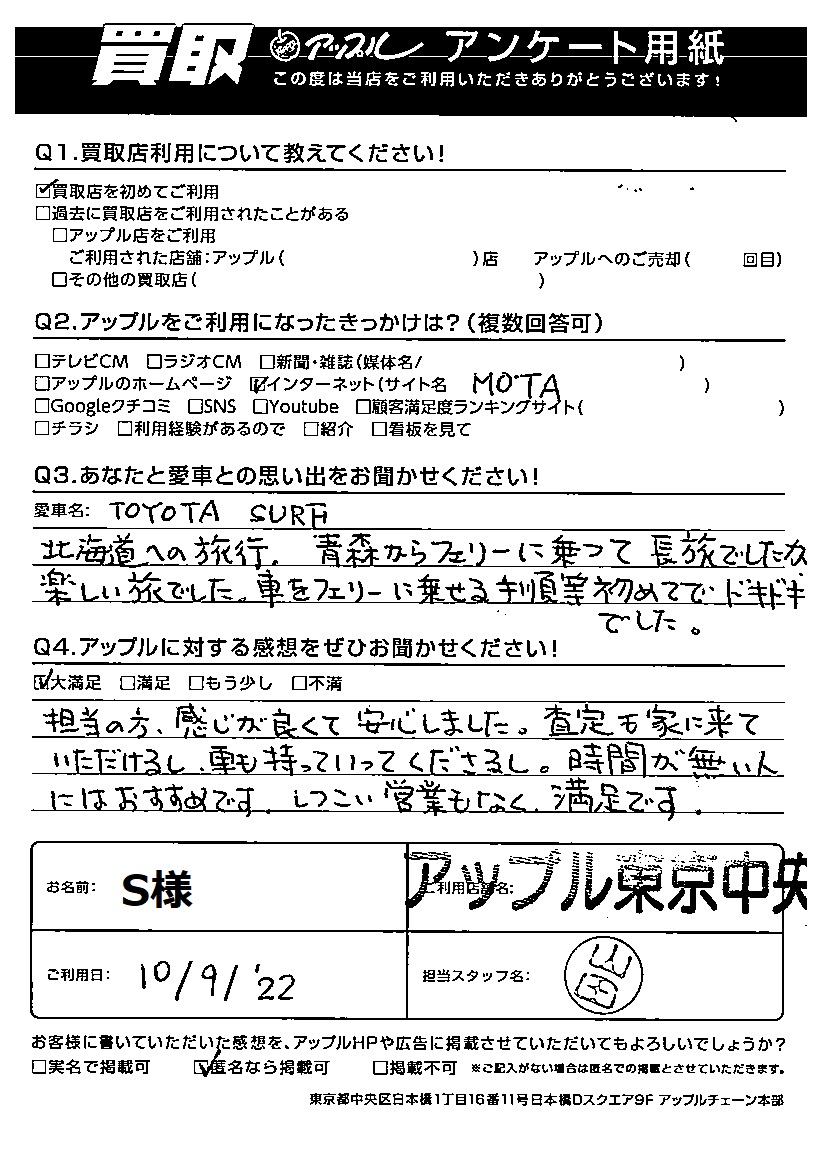 買取 アップル アンケート用紙
この度は当店をご利用いただきありがとうございます!
Q1.買取店利用について教えてください!
☑買取店を初めてご利用
□過去に買取店をご利用されたことがある
□アップル店をご利用
ご利用された店舗:アップル( )店 アップルへのご売却( 回目)
□その他の買取店( )
Q2.アップルをご利用になったきっかけは?(複数回答可)
□テレビCM □ラジオCM □新聞・雑誌(媒体名/ )
□アップルのホームページ ☑インターネット(サイト名 MOTA )
□Googleクチコミ □SNS □Youtube □顧客満足度ランキングサイト( )
□チラシ □利用経験があるので □紹介 □看板を見て
Q3.あなたと愛車との思い出をお聞かせください!
愛車名: TOYOTA SURF
北海道への旅行。青森からフェリーに乗って長旅でしたが
楽しい旅でした。車をフェリーに乗せる手順等初めてで ドキドキ
でした。
Q4.アップルに対する感想をぜひお聞かせください!
☑大満足 □満足 □もう少し □不満
担当の方、感じが良くて安心しました。査定も家に来て
いただけるし、車も持っていってくださるし。時間が無い人
にはおすすめです。しつこい営業もなく、満足です。
お名前: S様 ご利用店舗名: アップル東京中央
ご利用日: 10/9/'22 担当スタッフ名:
お客様に書いていただいた感想を、アップルHPや広告に掲載させていただいてもよろしいでしょうか?
□実名で掲載可 ☑匿名なら掲載可 □掲載不可 ※ご記入がない場合は匿名での掲載とさせていただきます。
東京都中央区日本橋1丁目16番11号日本橋Dスクエア9F アップルチェーン本部